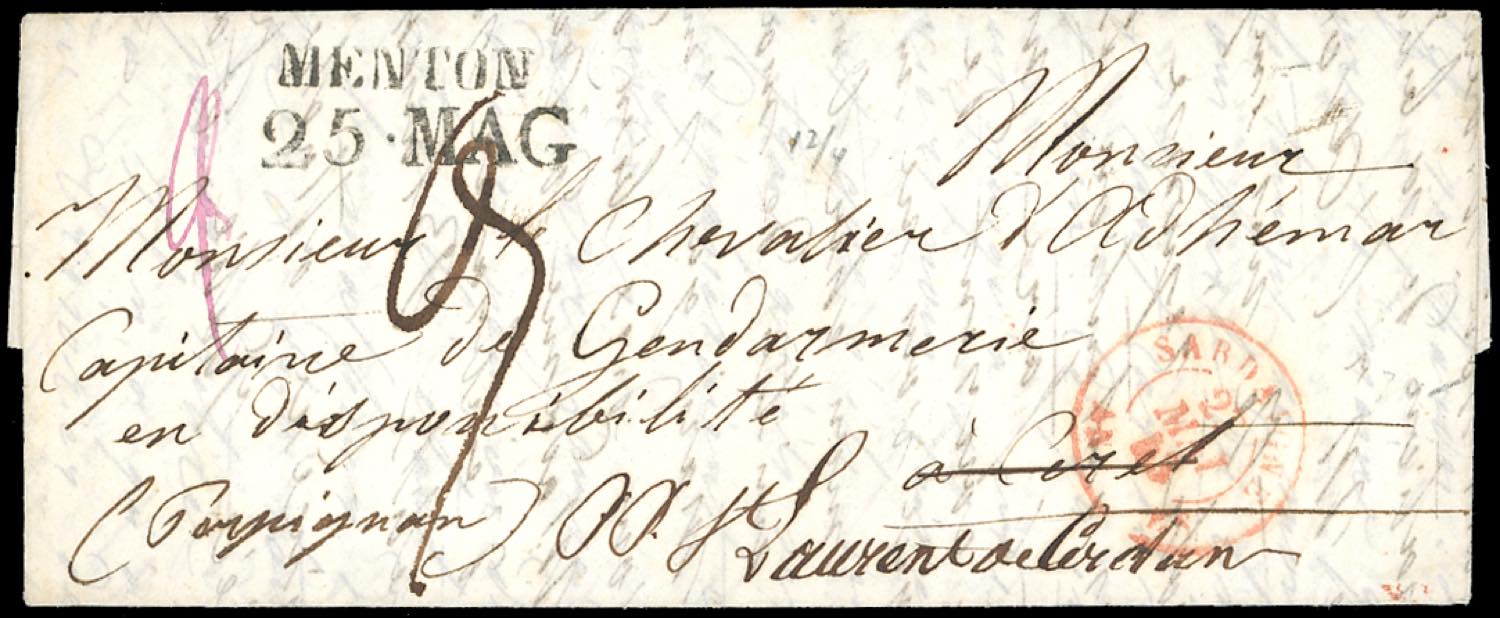 MENTON
25 · MAG
12/4
Monsieur
Monsieur le Chevalier d'Adhémar
Capitaine de Gendarmerie
en disponibilité
à Ceret
(Perpignan) P.P. St Laurent de Cerdan
SARD.